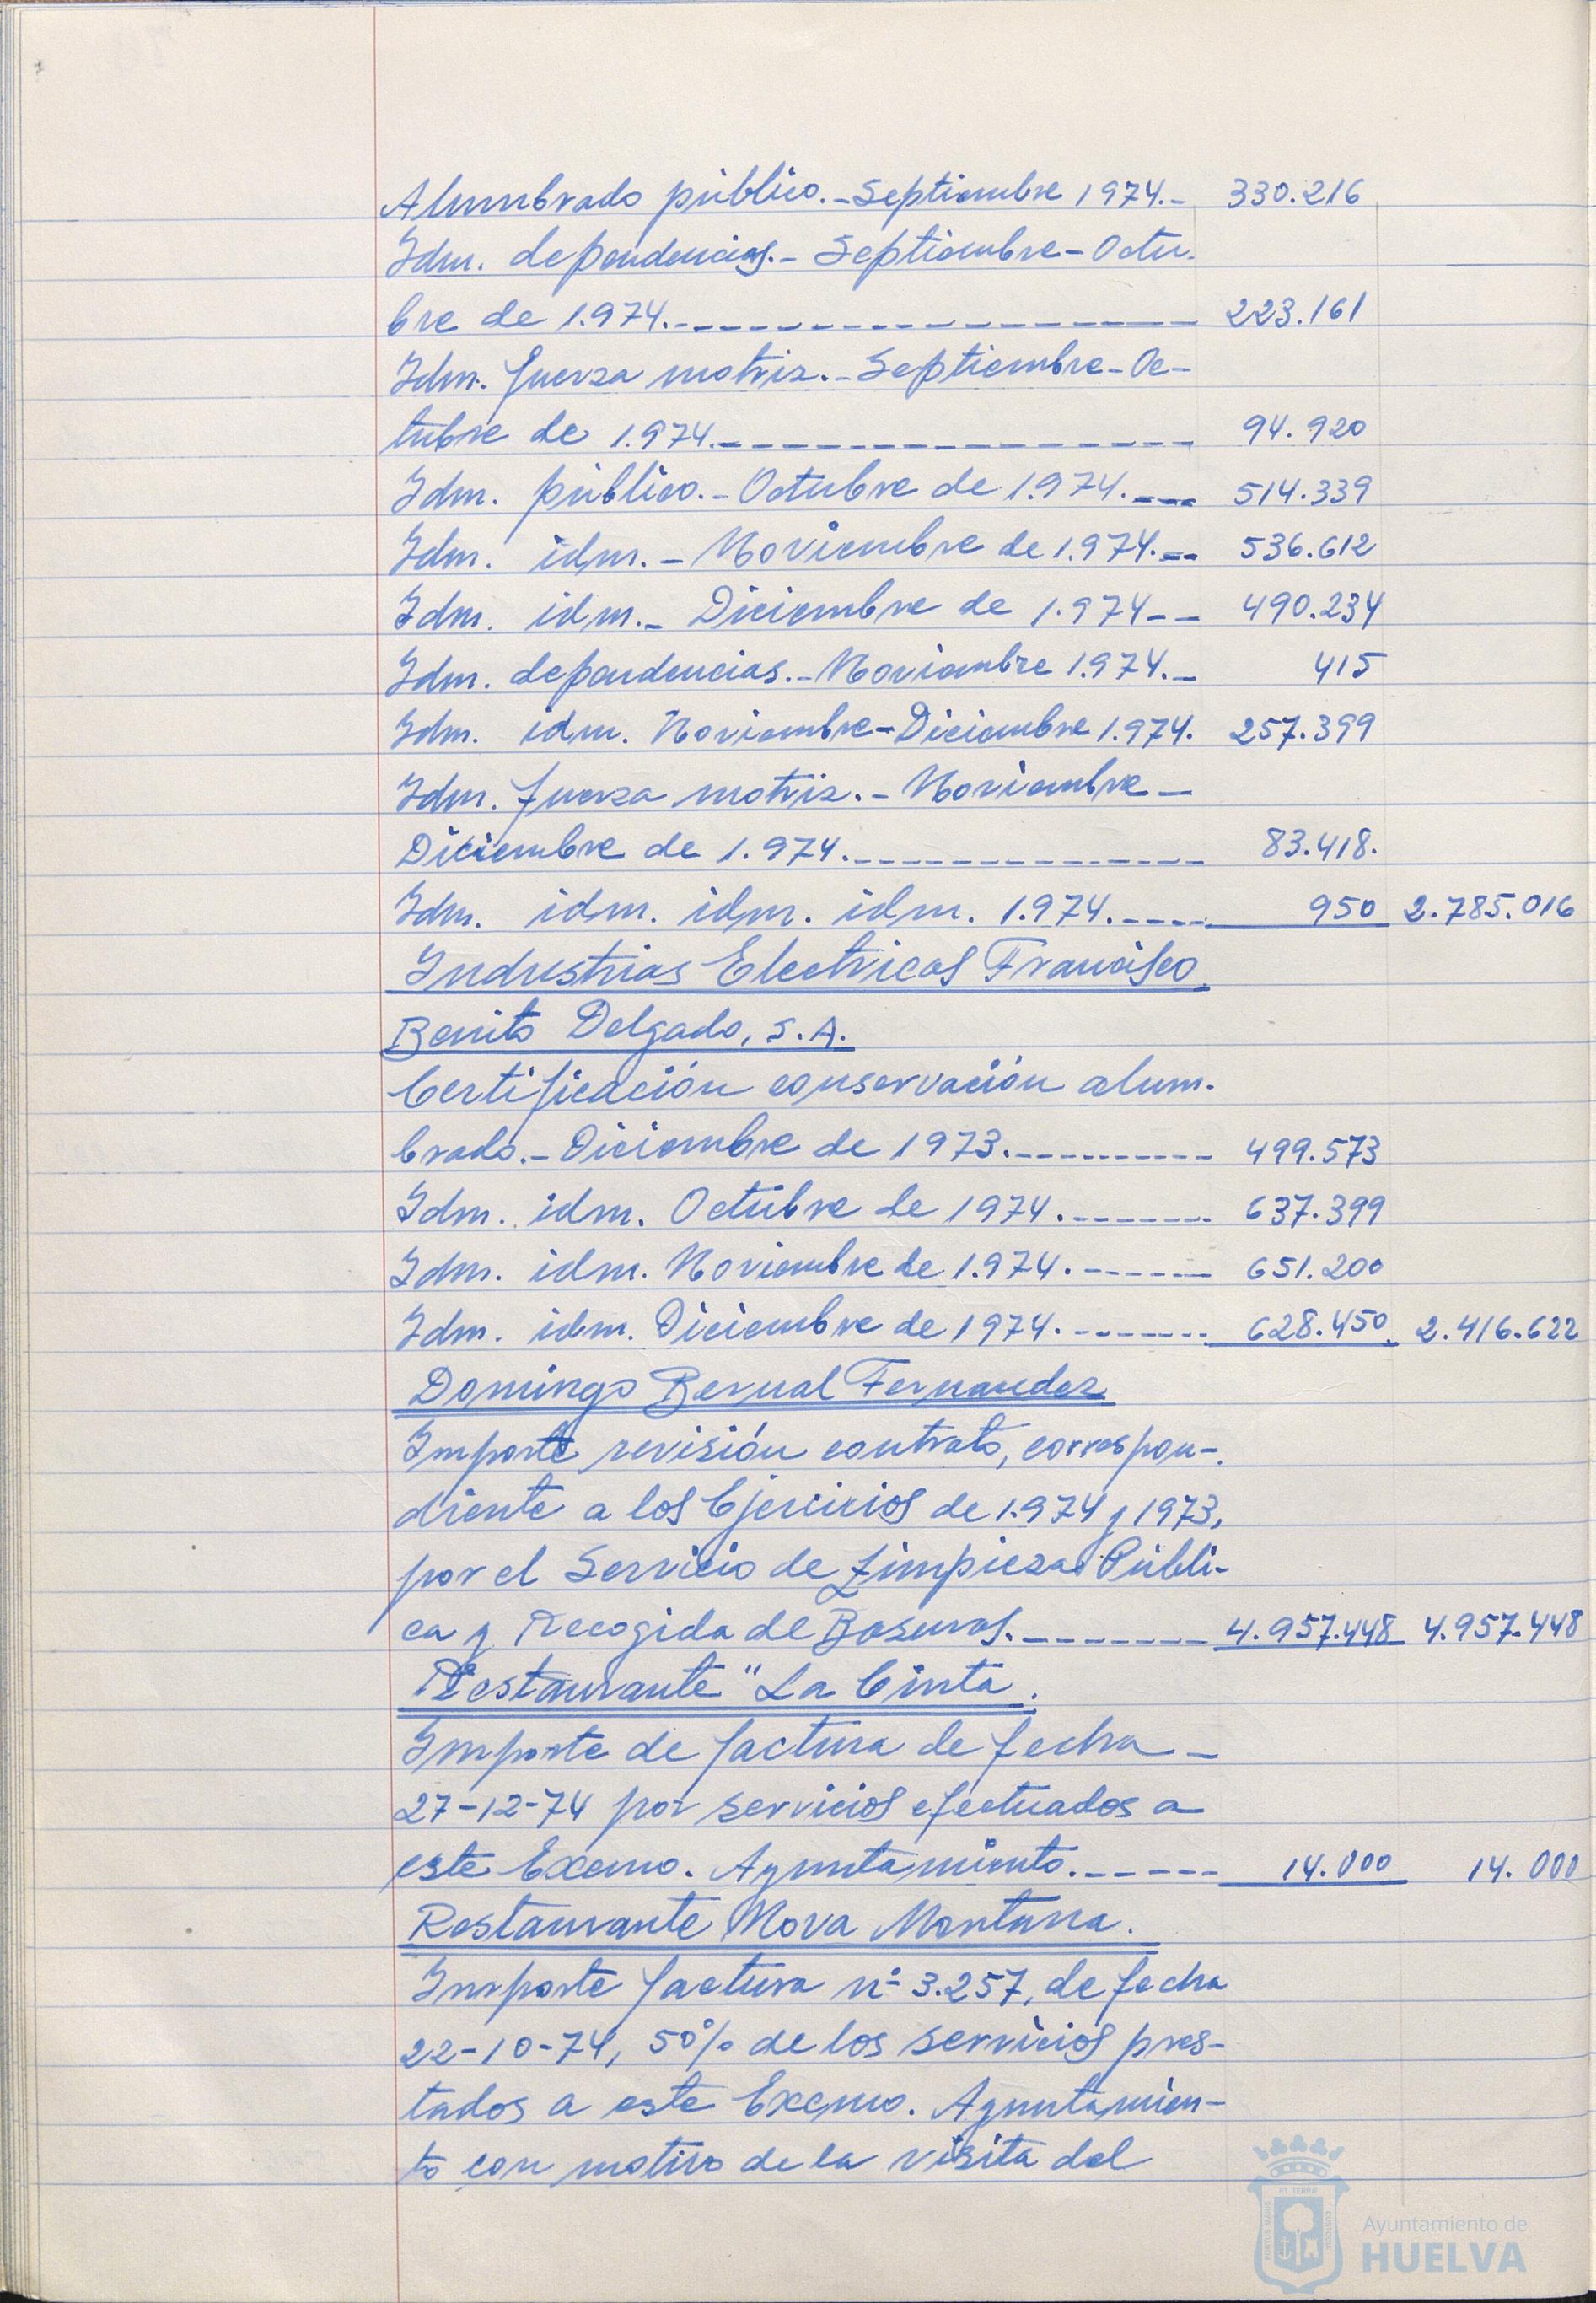 Alumbrado público.-Septiembre 1974.- 330.216
Idm. dependencias.- Septiembre-Octu-
bre de 1.974.---------------- 223.161
Idm. fuerza motriz.-Septiembre-Oc-
tubre de 1.974.--------------- 94.920
Idm. público.-Octubre de 1.974.--- 514.339
Idm. idm.- Noviembre de 1.974.-- 536.612
Idm. idm.- Diciembre de 1.974-- 490.234
Idm. dependencias.-Noviembre 1.974.- 415
Idm. idm. Noviembre-Diciembre 1.974. 257.399
Idm. fuerza motriz.-Noviembre-
Diciembre de 1.974.-------------- 83.418.
Idm. idm. idm. idm. 1.974.---- 950 2.785.016
Industrias Electricas Francisco
Benito Delgado, S.A.
Certificación conservación alum-
brado.-Diciembre de 1973.---------- 499.573
Idm. idm. Octubre de 1974.------- 637.399
Idm. idm. Noviembre de 1.974.------ 651.200
Idm. idm. Diciembre de 1974.------- 628.450 2.416.622
Domingo Bernal Fernandez
Importe revisión contrato, correspon-
diente a los Ejercicios de 1.974 y 1973,
por el Servicio de Limpieza Públi-
ca y Recogida de Basuras.------- 4.957.448 4.957.448
Restaurante "La Cinta.
Importe de factura de fecha-
27-12-74 por servicios efectuados a
este Excmo. Ayuntamiento.----- 14.000 14.000
Restaurante Nova Montana.
Importe factura nº 3.257, de fecha
22-10-74, 50% de los servicios pres-
tados a este Excmo. Ayuntamien-
to con motivo de la visita del
Ayuntamiento de
HUELVA